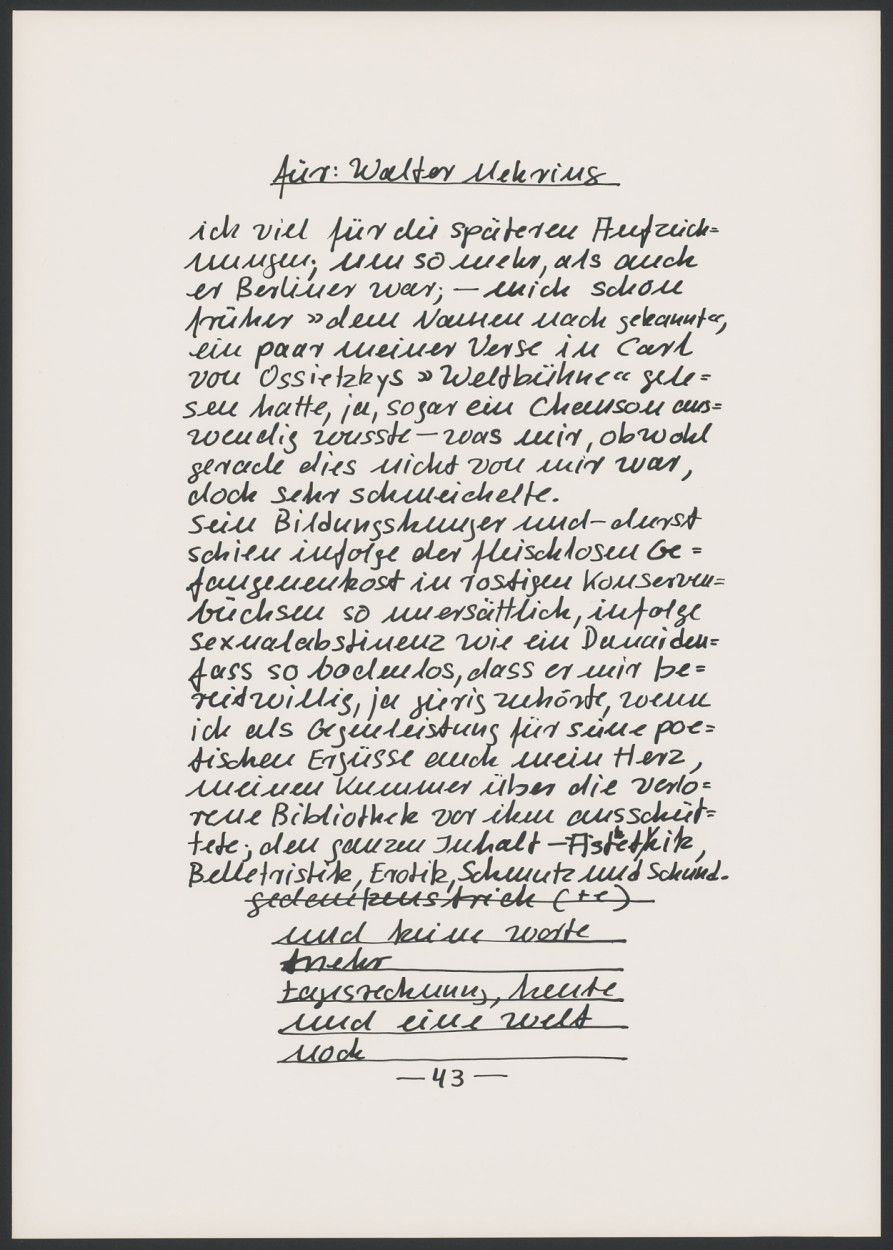 für: Walter Mehring
ich viel für die späteren Aufzeich=
nungen; um so mehr, als auch
er Berliner war; — mich schon
früher »dem Namen nach gekannt«,
ein paar meiner Verse in Carl
von Ossietzkys »Weltbühne« gele=
sen hatte, ja, sogar ein Chanson aus=
wendig wusste — was mir, obwohl
gerade dies nicht von mir war,
doch sehr schmeichelte.
Sein Bildungshunger und -durst
schien infolge der fleischlosen Ge=
fangenenkost in rostigen Konserven=
büchsen so unersättlich, infolge
Sexualabstinenz wie ein Danaiden=
fass so bodenlos, dass er mir be=
reitwillig, ja gierig zuhörte, wenn
ich als Gegenleistung für seine poe=
tischen Ergüsse auch mein Herz,
meinen Kummer über die verlo=
rene Bibliothek vor ihm ausschüt=
tete; den ganzen Inhalt — Ästhetik,
Belletristik, Erotik, Schmutz und Schund.
gedankenstrich (+e)
und keine worte
mehr
tagesrechnung, heute
und eine welt
noch
— 43 —